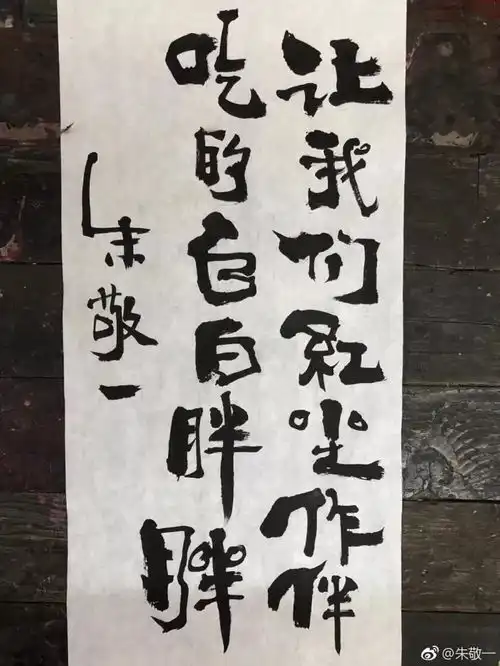 让我们红尘作伴
吃的白白胖胖
朱敬一
@朱敬一